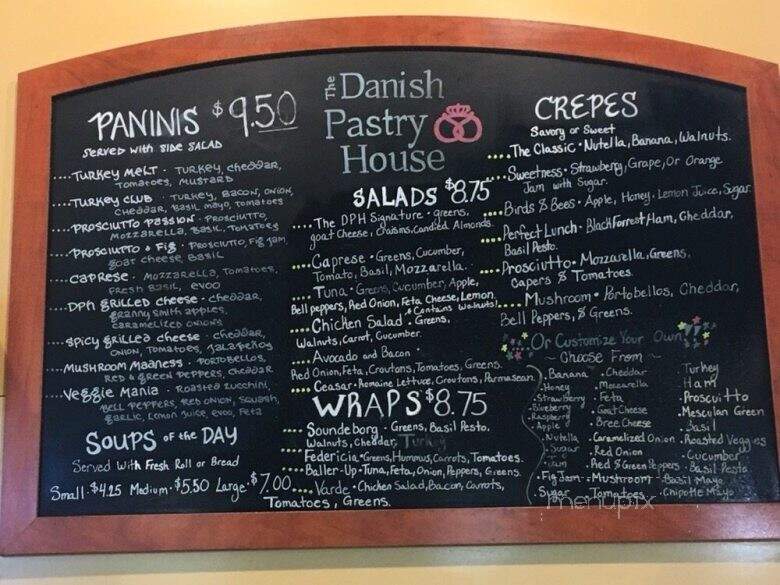 PANINIS $9.50
SERVED WITH SIDE SALAD
....TURKEY MELT · TURKEY, CHEDDAR,
TOMATOES, MUSTARD
....TURKEY CLUB · TURKEY, BACON, ONION,
CHEDDAR, BASIL MAYO, TOMATOES
....PROSCIUTTO PASSION · PROSCIUTTO,
MOZZARELLA, BASIL, TOMATOES
....PROSCIUTTO & FIG · PROSCIUTTO, FIG JAM,
GOAT CHEESE, BASIL
....CAPRESE · MOZZARELLA, TOMATOES,
FRESH BASIL, EVOO
....DPH GRILLED CHEESE · CHEDDAR,
GRANNY SMITH APPLES,
CARAMELIZED ONIONS
....SPICY GRILLED CHEESE · CHEDDAR,
ONION, TOMATOES, JALAPEÑOS
....MUSHROOM MADNESS · PORTOBELLOS,
RED & GREEN PEPPERS, CHEDDAR
....VEGGIE MANIA · ROASTED ZUCCHINI,
BELL PEPPERS, RED ONION, SQUASH,
GARLIC, LEMON JUICE, EVOO, FETA
SOUPS OF THE DAY
Served With Fresh Roll or Bread
Small · $4.25 Medium · $5.50 Large · $7.00
The Danish
Pastry
House
SALADS $8.75
....The DPH Signature · Greens,
Goat Cheese, Craisins, Candied Almonds.
....Caprese · Greens, Cucumber,
Tomato, Basil, Mozzarella.
....Tuna · Greens, Cucumber, Apple,
Bell peppers, Red Onion, Feta Cheese, Lemon.
*Contains Walnuts*
....Chicken Salad · Greens,
Walnuts, Carrot, Cucumber.
....Avocado and Bacon ·
Red Onion, Feta, Croutons, Tomatoes, Greens.
....Ceasar · Romaine Lettuce, Croutons, Parmasean.
WRAPS $8.75
....Soundeborg · Greens, Basil Pesto.
Walnuts, Cheddar, Turkey
....Federicia · Greens, Hummus, Carrots, Tomatoes.
....Baller-Up · Tuna, Feta, Onion, Peppers, Greens.
....Varde · Chicken Salad, Bacon, Carrots,
Tomatoes, Greens.
CREPES
Savory or Sweet
....The Classic · Nutella, Banana, Walnuts.
....Sweetness · Strawberry, Grape, Or Orange
Jam with Sugar.
....Birds & Bees · Apple, Honey, Lemon Juice, Sugar
....Perfect Lunch · Black Forrest Ham, Cheddar,
Basil Pesto.
....Prosciutto · Mozzarella, Greens,
Capers & Tomatoes.
....Mushroom · Portobellos, Cheddar,
Bell Peppers, & Greens.
...Or Customize Your Own
~ Choose From ~
· Banana
· Honey
· Strawberry
· Blueberry
· Raspberry
· Apple
· Nutella
· Sugar
· Jam
· Fig Jam
· Sugar
· Cheddar
· Mozzarella
· Feta
· Goat Cheese
· Bree Cheese
· Caramelized Onion
· Red Onion
· Red & Green Peppers
· Mushroom
· Tomatoes
· Turkey
· Ham
· Proscuitto
· Mesculan Green
· Basil
· Roasted Veggies
· Cucumber
· Basil Pesto
· Basil Mayo
· Chipotle Mayo
menupix